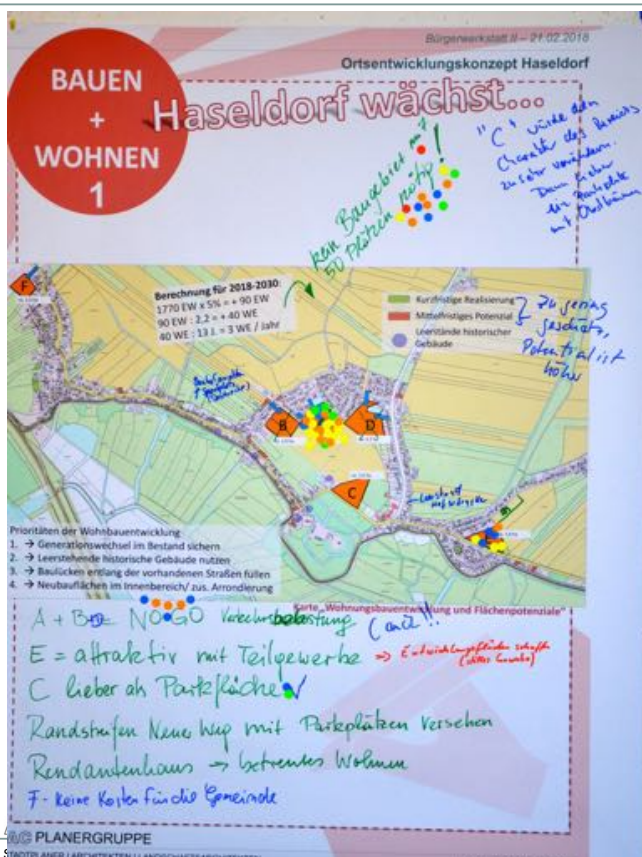 Bürgerwerkstatt II – 21.02.2018
Ortsentwicklungskonzept Haseldorf
BAUEN
+
WOHNEN
1
Haseldorf wächst...
"C" würde den
Charakter des Bereichs
zu sehr verändern.
Dann lieber
mit Obstbäumen
kein Baugebiet mit
50 Plätzen nötig!
F
Berechnung für 2018-2030:
1770 EW x 5% = + 90 EW
90 EW : 2,2 = + 40 WE
40 WE : 13 J. = 3 WE / Jahr
Kurzfristige Realisierung
Mittelfristiges Potenzial
Leerstände historischer
Gebäude
zu gering
geschätzt,
Potential ist
höher
B
D
C
E
Prioritäten der Wohnbauentwicklung
1. → Generationswechsel im Bestand sichern
2. → Leerstehende historische Gebäude nutzen
3. → Baulücken entlang der vorhandenen Straßen füllen
4. → Neubauflächen im Innenbereich/ zus. Arrondierung
Karte „Wohnungsbauentwicklung und Flächenpotenziale"
NO GO Verkehrsbelastung
E = attraktiv mit Teilgewerbe
C lieber als Parkfläche
Randstreifen Neuer Weg mit Parkplätzen versehen
Rendantenhaus → betreutes Wohnen
F - Keine Kosten für die Gemeinde
AC PLANERGRUPPE
STADTPLANER | ARCHITEKTEN | LANDSCHAFTSARCHITEKTEN